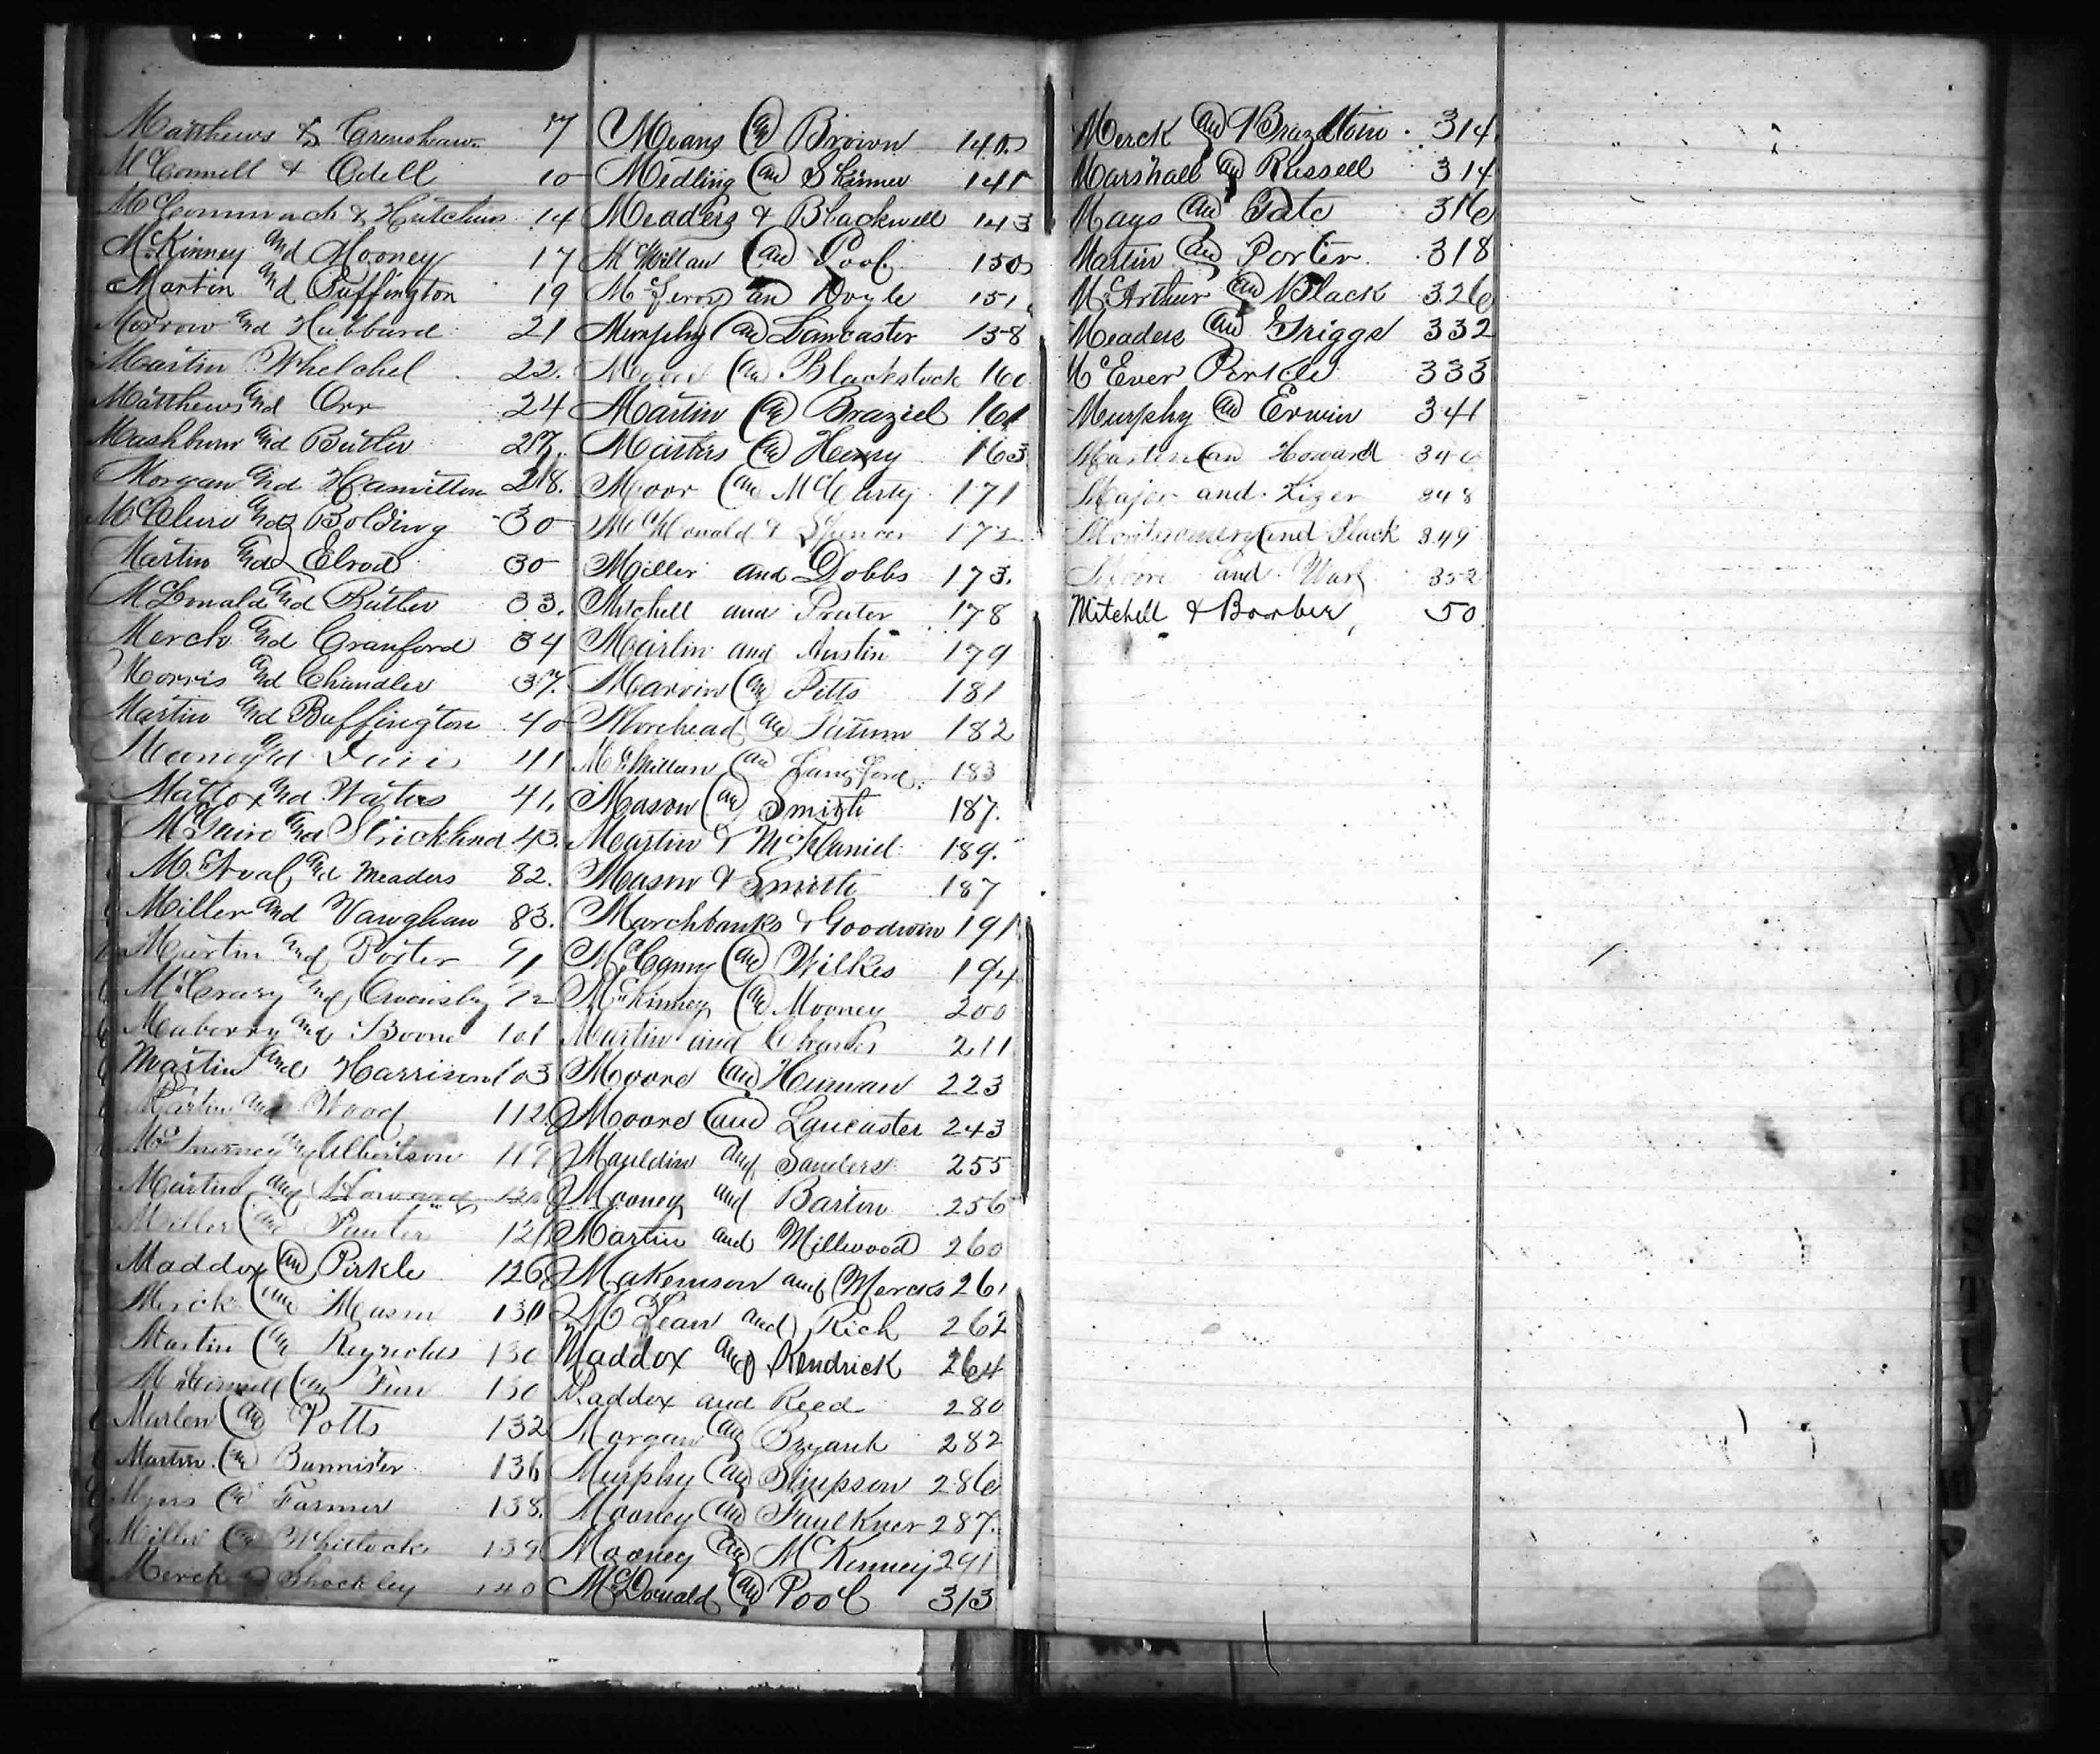 Matthews & Crenshaw 7
McConnell & Odell 10
McCommach & Hutchins 14
McKinney and Mooney 17
Martin and Buffington 19
Morrow and Hubbard 21
Martin Whelchel 22.
Matthews and Orr 24
Mashburn and Butler 27.
Morgan and Hamilton 28.
McClure and Bolding 30
Martin and Elrod 30
McDonald and Butler 33.
Merck and Cranford 34
Morris and Chandler 37.
Martin and Buffington 40
Mooney and 41
Mattox and Waters 41.
McGuire and Strickland 43.
McAvoy and Meaders 82.
Miller and Vaughan 83.
Martin and Porter 91
McCrary and Owensby 92
Maberry and Boone 101
Martin and Harrison 103
Martin and Wood 112
and Albertson 119
Martin and Howard 120
Miller and 121
Maddox and Pirkle 126
Merck and Mason 130
Martin and Reynolds 130
McConnell and 130
Marlen and Potts 132
Martin and Bannister 136
Myers and Farmer 138.
Miller and Whitlock 139
Merck Shockley 140
Means and Brown 140
Medling and Skinner 141
Meaders & Blackwell 143
McMillan and Pool 150
McLeroy an Doyle 151
Murphy and Lancaster 158
Moore and Blackstock 160
Martin and Braziel 161
Masters and Henry 163
Moor and McCarty 171
McDonald & Spencer 172
Miller and Dobbs 173.
Mitchell and Prater 178
Martin and Austin 179
Marvin and Pitts 181
Morehead and Tatum 182
McMillan and Langford 183
Mason and Smith 187.
Martin & McDaniel 189.
Mason & Smith 187
Marchbanks & Goodwin 191
McCanny and Wilkes 194
McKinney and Mooney 200
Martin and Charles 211
Moore and Human 223
Moore and Lancaster 243
Mauldin and Sanders 255
Mooney and Barton 256
Martin and Millwood 260
Makemson and Mercks 261
McLean and Rich 262
Maddox and Kendrick 264
Maddox and Reed 280
Morgan and Bryant 282
Murphy and Simpson 286
Mooney and Faulkner 287.
Mooney and McKinney 291
McDonald and Pool 313
Merck and Brazelton 314
Marshall and Russell 314
Mays and Tate 316
Martin and Porter 318
McArthur and Black 326
Meaders and Griggs 332
McEver Pirkle 333
Murphy and Erwin 341
Martin an Howard 346
Major and Kizer 348
Montgomery and Black 349
Moore and Wark 352
Mitchell & Boorber, 50